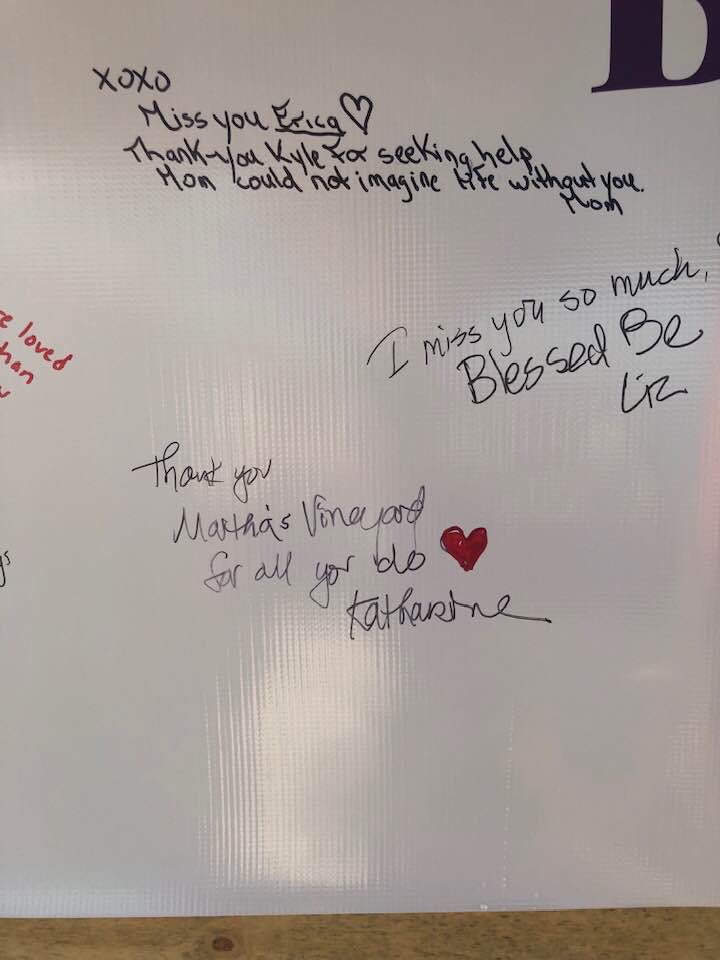 XOXO
Miss you Erica
Thank-you Kyle For seeking help
Mom could not imagine life without you.
Mom
I miss you so much,
Blessed Be
Liz
loved
Thank you
Martha's Vineyard
for all you do
Katharine